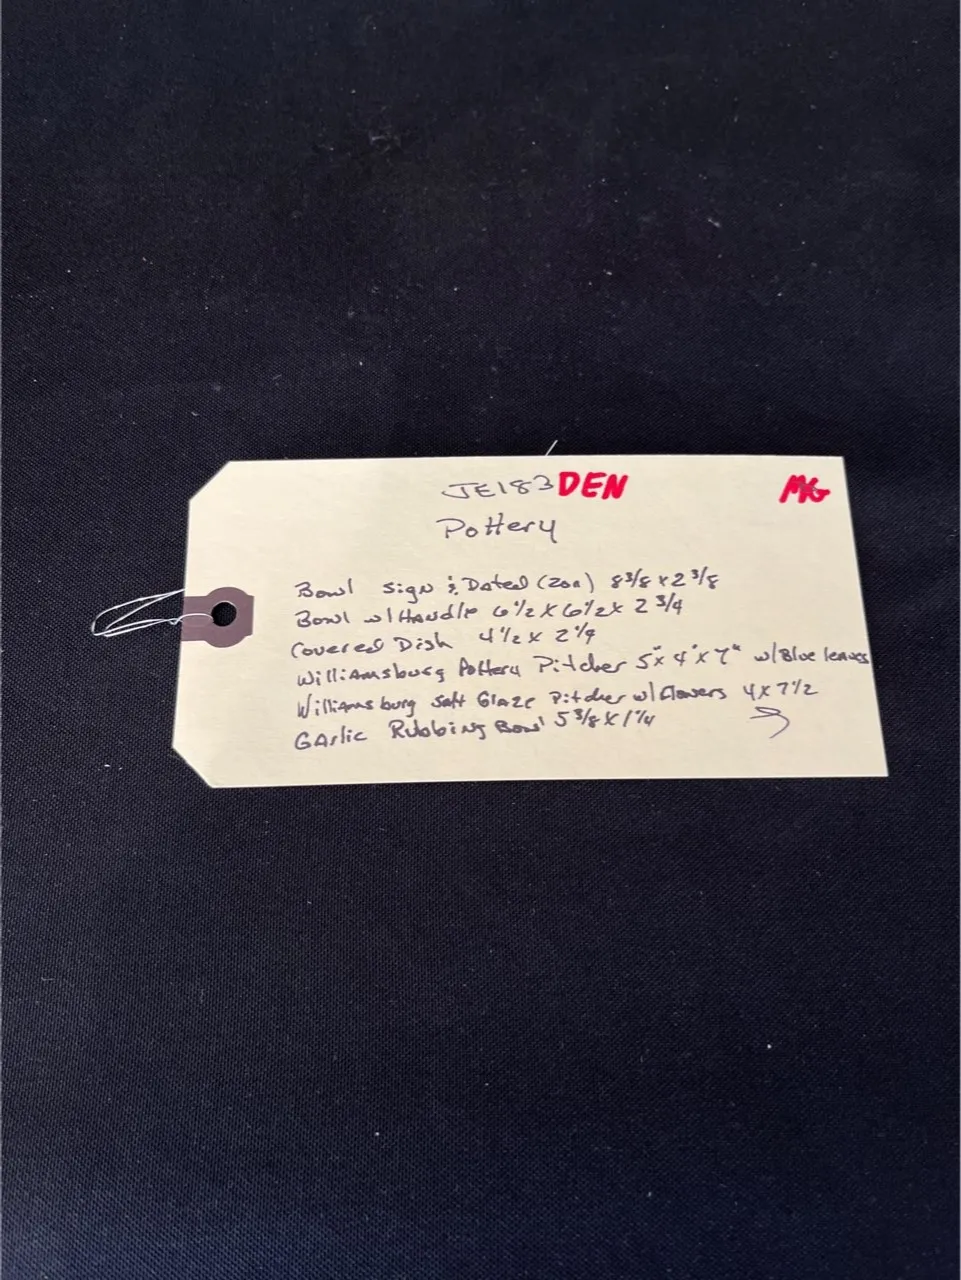 JE183 DEN MG
Pottery
Bowl Sign & Dated (Zoa) 8 3/8 x 2 3/8
Bowl w/Handle 6 1/2 x 6 1/2 x 2 3/4
Covered Dish 4 1/2 x 2 1/4
Williamsburg Pottery Pitcher 5" x 4" x 7" w/Blue leaves
Williamsburg Salt Glaze Pitcher w/Flowers 4 x 7 1/2
Garlic Rubbing Bowl 5 3/8 x 1 1/4